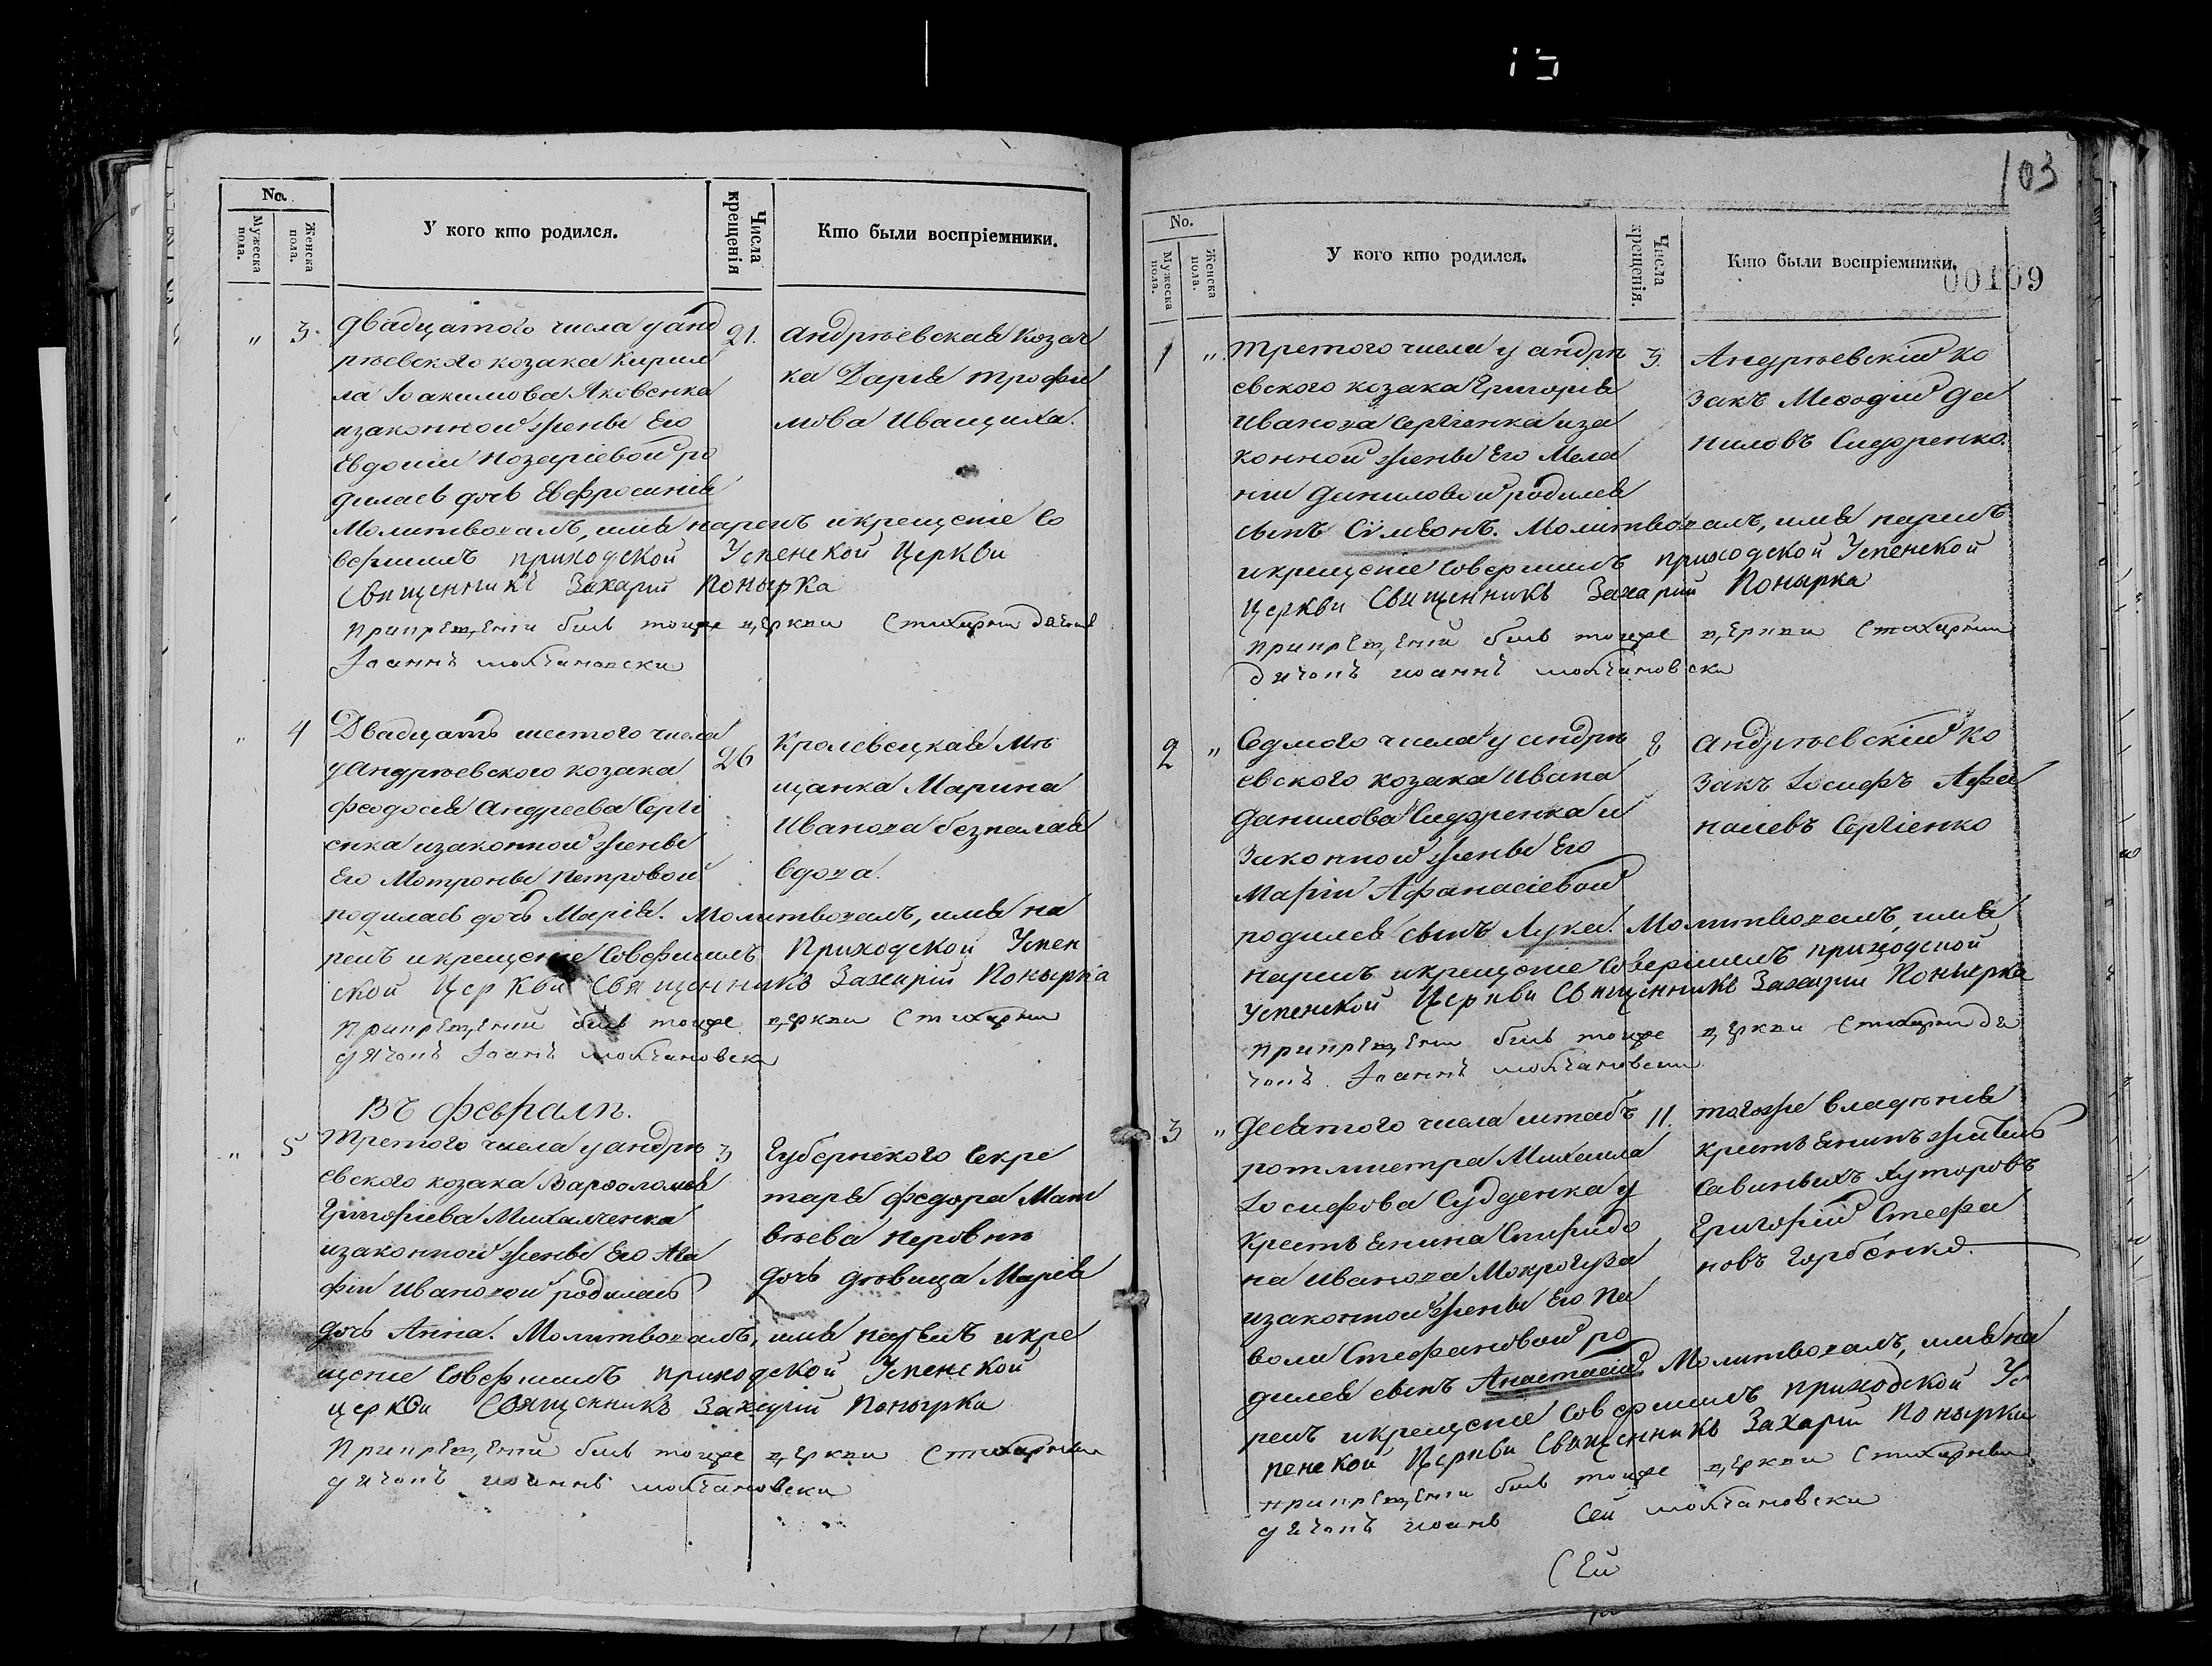 No.
Мужеска пола.
Женска пола.
У кого кто родился.
Числа крещенія
Кто были воспріемники.
" 3. двадцатого числа у анд
рѣевского козака Кирил
ла Іоакимова Яковенка
изаконной жены Его
Евдокіи Назаріевой ро
дилась дочь Евфросинія
Молитвовалъ, имя нарекъ и крещеніе со
вершилъ приходской Успенской Церкви
Священникъ Захарій Понырка
При крещеніи билъ тойже церкви Стихарни дячокъ
Іоаннъ молчановски
21. андрѣевская Козач
ка Дарія Трофи
мова Иващиха.
" 4 Двадцать шестого числа
у Андрѣевского козака
Феодосія Андреева Сергі
енка изаконной жены
Его Мотроны Петровой
родилась дочь Марія. Молитвовалъ, имя на
рекъ и крещеніе Совершилъ Приходской Успен
ской Церкви Священникъ Захарій Понырка
При крещеній билъ тойже церкви Стихарни
дячокъ Іоанъ молчановски
26 Кролевецкая Мѣ
щанка Марина
Иванова безпалая
вдова.
Въ февралѣ.
" 5 Третого числа у андрѣ
евского козака Варѳоломея
Григоріева Михалченка
изаконной жены Его Ага
фіи Ивановой родилась
дочь Анна. Молитвовалъ, имя нарекъ и кре
щеніе Совершилъ приходской Успенской
церкви Священникъ Захарій Понырка
При крещеній билъ тойже церкви Стихарни
дячокъ иоаннъ молчановски
3 Губернского Секре
таря Федора Мат
вѣева
дочь дѣвица Марія
103
00109
No.
Мужеска пола.
Женска пола.
У кого кто родился.
Числа крещенія.
Кто были воспріемники.
1 " Третого числа у андрѣ
евского козака Григорія
Иванова Сергіенка иза
конной жены Его Мела
ніи Даниловой родился
сынъ Сѵмеонъ. Молитвовалъ, имя нарекъ
и крещеніе Совершилъ приходской Успенской
Церкви Священникъ Захарій Понырка
При крещеній билъ тойже церкви Стихарни
дячокъ иоаннъ молчановски
3. Андрѣевскій Ко
закъ Меѳодій Да
ниловъ Сидоренко.
2 " Седмого числа у андрѣ
евского козака Ивана
Данилова Сидоренка и
Законной жены Его
Маріи Афанасіевой
родился сынъ Лука. Молитвовалъ, имя
нарекъ и крещеніе Совершилъ приходской
Успенской Церкви Священникъ Захарій Понырка
При крещени билъ тойже церкви Стихарни дя
чокъ Іоаннъ молчановски
8 андрѣевскій Ко
закъ Іосифъ Афа
насіевъ Сергіенко
3 " Десятого числа штабъ
ротмистра Михаила
Іосифова Судденка у
Крестьянина Спиридо
на Иванова Мокрогуза
изаконной жены Его Па
волы Стефановой ро
дился сынъ Анастасій. Молитвовалъ, имя на
рекъ и крещеніе Совершилъ приходской Ус
пенской Церкви Священникъ Захарій Понырка
При крещени билъ тойже церкви Стихарни
дячокъ иоанъ Сей молчановски
Сей
11. тогоже владѣнія
крестьянинъ житель
Савиныхъ Хуторовъ
Григорій Стефа
новъ Горбенко.